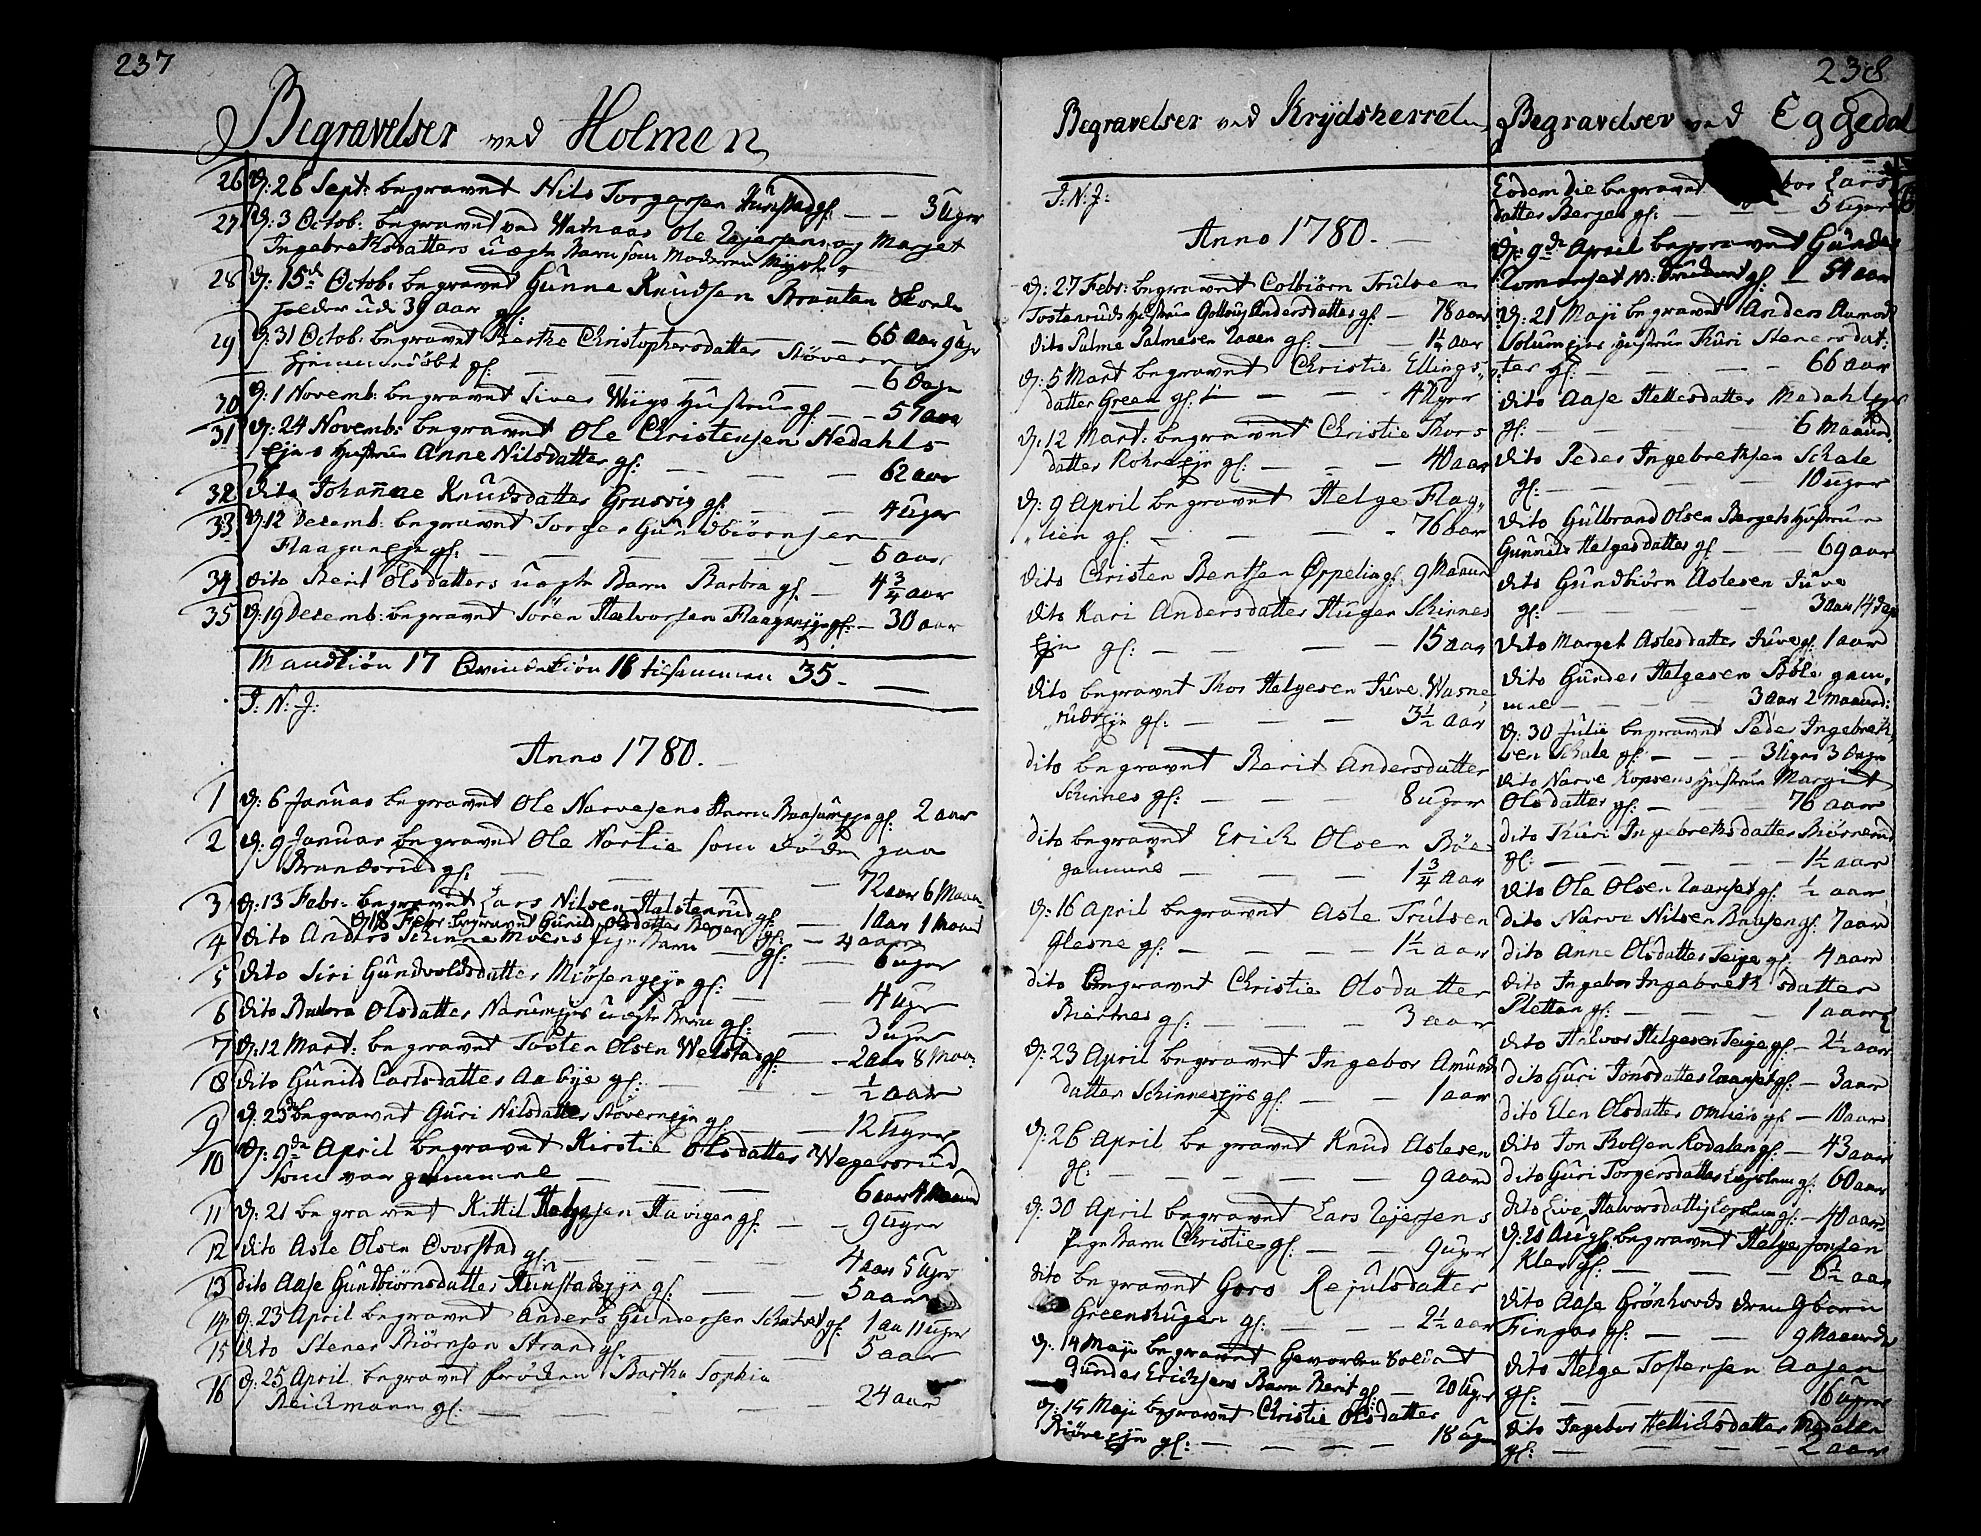 237
Begravelser ved Holmen
26 d: 26 Sept: begravet Nils Torgersen Kunstad gl: — — 3 Uger
27 d: 3 Octob: begravet ved Ole og Marget
Ingebretsdatters uægte Barn som Moderen
28 d: 15de Octob: begravet Gunne Knudsen Braaten
udi 39 aar gl:
29 d: 31 Octob: begravet Christophersdatter — — 65 aar 9 uger
gl: — — — 6 Dage
30 d: 1 Novemb: begravet Hustrue gl: — — 57 aar
31 d: 24 Novemb: begravet Ole Christensen Medahls
Ejes Hustrue Anne Nilsdatter gl: — — — 62 aar
32 dito Johanne Knudsdatter Grasvig gl: — — 4 uger
33 d: 12 Decemb: begravet Torger Gundbiörnsen
Flaagan Eje gl: — — — 5 aar
34 dito Berit Olsdatters uægte Barn Barbra gl: — 4 3/4 aar
35 d: 19 Decemb: begravet Sören Halvorsen Flaaganeje gl: — 30 aar
Mandkiön 17 Qvindekiön 18 tilsammen 35.
I: N: J:
Anno 1780.
1 d: 6 Januar begravet Ole Narvesens Barn gl: 2 aar
2 d: 9 Januar begravet Ole Nortie som döde paa
Brandsrud gl: — — — 72 aar 6 Maan
3 d: 13 Febr: begravet Lars Nilsen Halstenrud gl: — 1 aar 1 Maaned
d: 18 Febr begravet Gunild Olsdatter Bergan gl: — 4 aar
4 dito Anders Schinnes Moens Barn gl: — 6 uger
5 dito Siri Gundvoldsdatter Miösengeje gl: — 4 Uger
6 dito Olsdatter uægte Barn gl: — 3 uger
7 d: 12 Mart: begravet Tosten Olsen Welstad gl: — 2 aar 8 Maa:
8 dito Gunild Carlsdatter Aabye gl: — — 1/2 aar
9 d. 23de begravet Guri Nilsdatter Stöverneje gl: — 12 Uger
10 d: 9de April begravet Kirstie Olsdatter
som var gammel — — — 6 aar 4 Maaned
11 d: 21 begravet Kittil Helgesen Havigen gl: — — 9 Uger
12 dito Asle Olsen gl: — — 4 aar 5 Uger
13 dito Aase Gundbiörnsdatter Kunstadeje gl: — — 5 aar
14 d: 23 April begravet Anders Gundersen gl: 1 aar 11 uger
15 dito Stener Biörnsen Strand gl: — — 5 aar
16 d: 25 April begravet fröcken Bartha Sophia
Reichmann gl: — — — 24 aar
Begravelser ved Krydsherret
I: N: J:
Anno 1780.
d: 27 Febr: begravet Colbiörn Trulsen
Tostenruds Hustrue Andersdatter gl: — 78 aar
dito Palme Palmesen gl: — — 1 1/2 aar
d: 5 Mart begravet Christie Ellings
datter Green gl: — — — 4 Uger
d: 12 Mart: begravet Christie Thors
datter eje gl: — — — 40 aar
d: 9 April begravet Helge Flag
lien gl: — — — — 76 aar
dito Christen Bentsen Oppelia gl: 9 Maaned
dito Kari Andersdatter Haugen Schinnes
Eje gl: — — — 15 aar
dito begravet Thor Helgesen Juve Wasne
ruds eje gl: — — — 3 1/2 aar
dito begravet Berit Andersdatter
Schinnes gl: — — — 8 uger
dito begravet Erick Olsen Böe
gammel — — — 1 3/4 aar
d: 16 April begravet Asle Trulsen
Glesne gl: — — — 1 1/2 aar
dito begravet Christie Olsdatter
Biertnes gl: — — — 3 aar
d: 23 April begravet Ingebor Amunds
datter Schinnes gl: — — 1 aar
d: 26 April begravet Knud Aslesen
gl: — — — — 9 aar
d: 30 April begravet Lars Ejersens
Pige Barn Christie gl: — — 9 uger
dito begravet Goro Rejulsdatter
Greenshugen gl: — — — 2 1/2 aar
d: 14 Maji begravet Geworben Soldat
Gunder Ericksens Barn Berit gl: — 20 Uger
d: 15 Maji begravet Christie Olsdatter
Biöre Eje gl: — — — — 18 uger
238
Begravelser ved Eggedal
Eodem die begravet Lars
datter Berget gl: — — — 5 Uger
d: 9de April begravet Gunder
gl: — 54 aar
d: 21 Maji begravet Anders Aamod
Hustrue Thuri Stenersdat:
ter gl: — — — 66 aar
dito Aase Hellesdatter
gl: — — — — 6 Maaned
dito Peder Ingebretsen Schale
gl: — — — — 10 uger
dito Gulbrand Olsen Bergets Hustrue
Gunnild Helgesdatter gl — — 69 aar
dito Gundbiörn Aslesen Juve
gl: — — — — 3 aar 14 dage
dito Marget Aslesdatter Juve gl: 1 aar
dito Gunder Helgesen Böle gam,
mel — — — — 3 aar 2 Maaned:
d: 30 Julii begravet Peder Ingebret,
sen Schale gl: — — 3 Uger 3 Dage
dito Narve Hustrue Margit
Olsdatter gl: — — 76 aar
dito Thuri Ingebretsdatter Biörnerud
gl: — — — — 1 1/2 aar
dito Ole Olsen gl: 1/2 aar
dito Narve Nilsen gl: 7 aar
dito Anne Olsdatter Teige gl: 4 aar
dito Ingebor Ingebretsdatter
Pletten gl: — — — 1 aar
dito Halvor Helgesen Teige gl: — 2 1/2 aar
dito Guri Jonsdatter gl: — 3 aar
dito Elen Olsdatter gl: — 10 aar
dito Jon gl: — 43 aar
dito Guri Torgersdatter gl: 60 aar
dito Live Halvorsdatter gl: — 40 aar
d: 20 Aug: begravet Helge Jonsen
gl: — — — — 6 1/2 aar
dito Aase Grönhovds dreng barn
gl: — — 9 Maaneder
dito Helge Tostensen Aasen
gl: — — — — 16 uger
dito Ingebor Hellicksdatter
gl: — — — — 2 aar